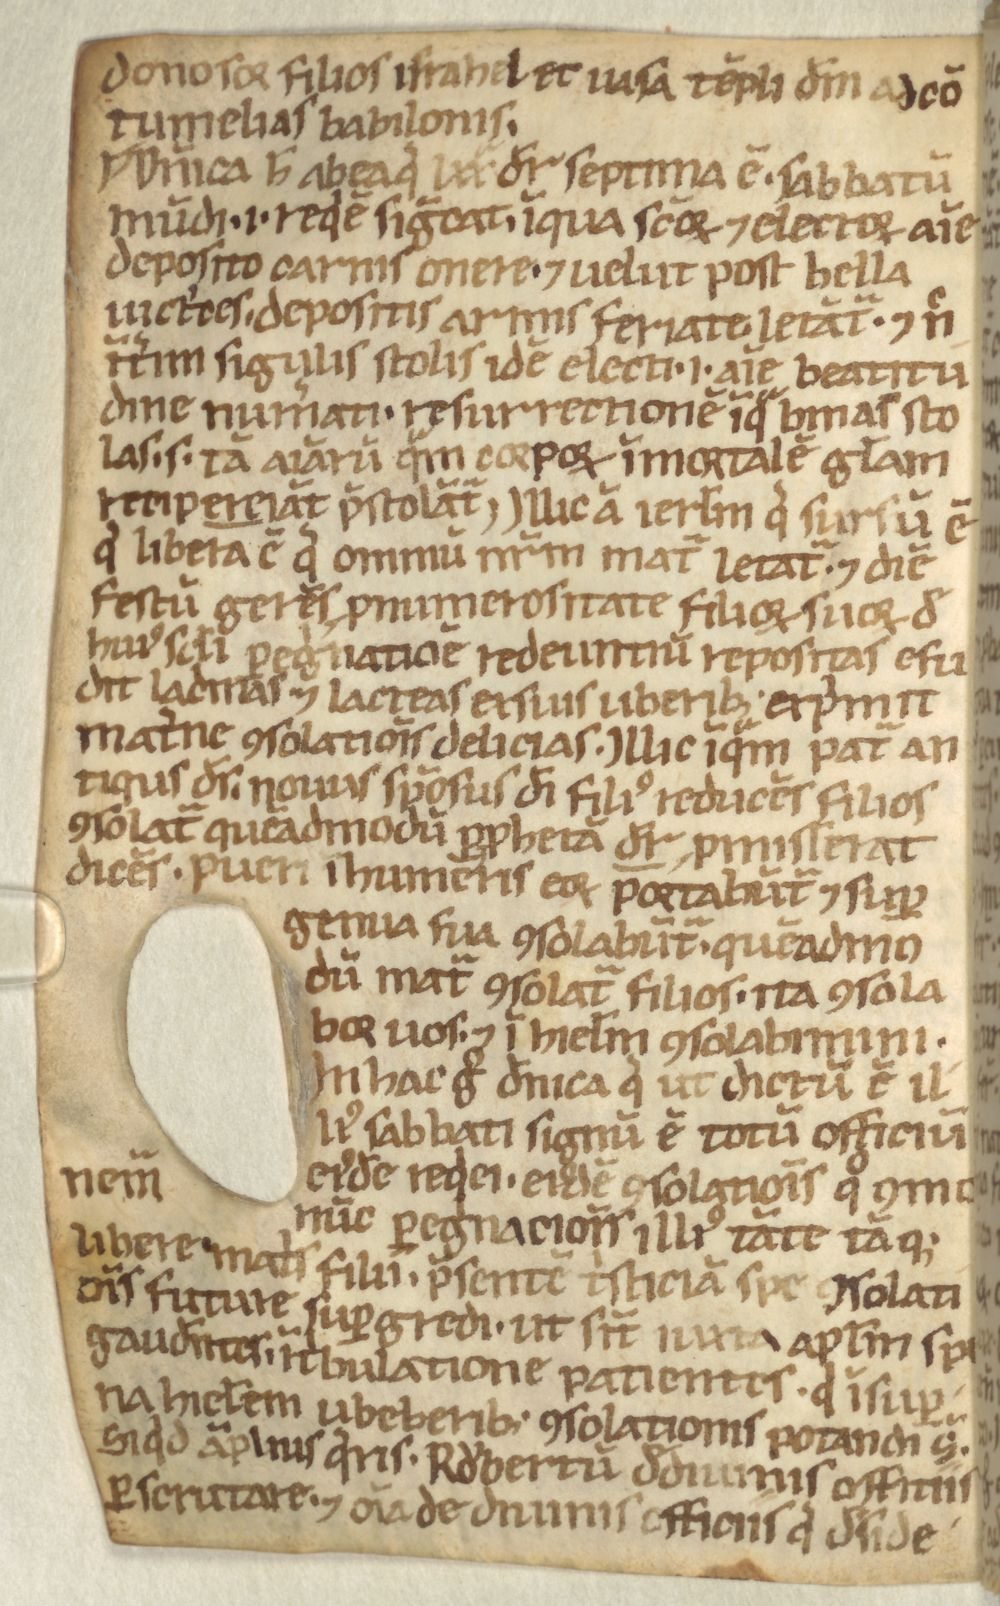 donosor filios israhel et uasa tēpli dn̄i ad cō
tumelias babilonis.
dn̄ica h̄ ab ea q̄ lxx dr̄ septima ē. sabbatū
mūdi .i. reqē sig̃cat. ī qua sc̄oꝝ ⁊ electoꝝ aīe
deposito carnis onere. ⁊ uelut post bella
uict'ces. depositis armis feriate letāt̄. ⁊ n̄
sigulis stolis idē electi .i. aīe beatitu
dine num̄ati. resurrectionē ī q̄ binas sto
las .s. tā aīarū q̄m corpoꝝ īmortalē gl̄am
recipere p̄stolāt̄; Illic ā ierl̄m q̄ sursū ē
q̄ libera ē q̄ omniū nr̄m mat̄ letat̄. ⁊ diē
festū gerēs p numerositate filioꝝ suoꝝ d̄
hui᾽ sc̄li ꝑeg̓natiōe redeuntiū repositas efu
dit lac̓mas ⁊ lacteas ex suis uberib; exp̓mit
mat̓ne ꝯsolatiōis delicias. Illic īq̄m pat̄ an
tiqus ds̄. nouus spōsus dī fili᾽ reducēs filios
ꝯsolat̄ quēadmodū ꝑ ꝓphetā dr̄ p̱miserat
dicēs. pueri ī humeris eoꝝ portabūt̄ ⁊ suꝑ
genua sua ꝯsolabūt̄. quēadmo
dū mat̄ ꝯsolat̄ filios. ita ꝯsola
bor uos. ⁊ ī hierl̄m ꝯsolabimini.
In hac g̊ dn̄ica q̄ ut dictū ē il
li᾽ sabbati signū ē totū officiū
eiꝰdē reqei. eiꝰdē ꝯsolatiōis
nem̄
nūc ꝑeg̓nacion̄is illi᾽ tāte tāq;
ubere mat̓s filii. p̄sentē t̓sticiā spe ꝯsolati
ōis future suꝑgredi. ut sīt iuxta apl̄m spe
gaudētes. ī t̓bulatione patientes. q̄ ī suꝑ
na hierl̄em ubeberib; ꝯsolationis potandi s̄.
Siqd āplius q̄ris. Rodbertū d̄ diuinis offitiis
ꝑscrutare. ⁊ oīa de diuinis officiis q̄ d̄side